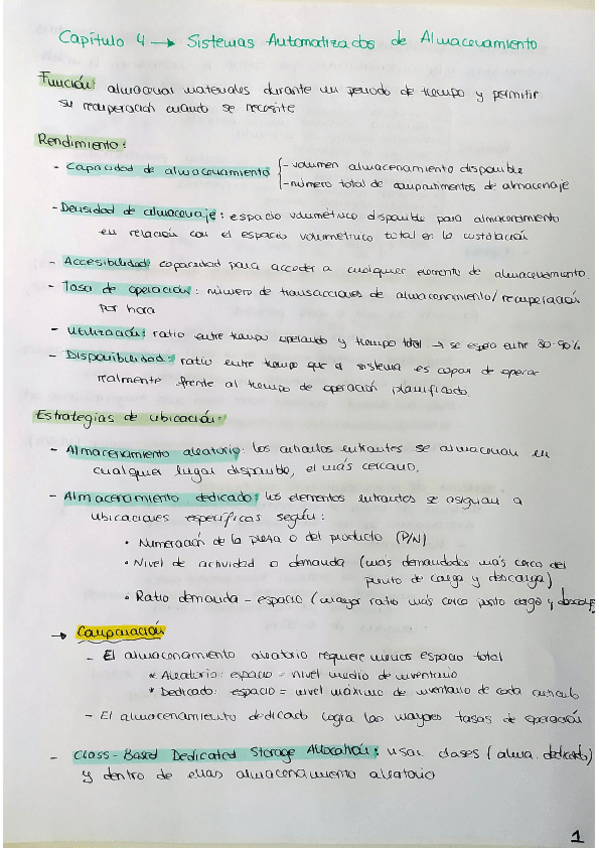 Capítulo 4 → Sistemas Automatizados de Almacenamiento
Función: almacenar materiales durante un periodo de tiempo y permitir
su recuperación cuando se necesite
Rendimiento:
- Capacidad de almacenamiento { - volumen almacenamiento disponible
- número total de compartimentos de almacenaje
- Densidad de almacenaje: espacio volumétrico disponible para almacenamiento
en relación con el espacio volumétrico total en la instalación
- Accesibilidad: capacidad para acceder a cualquier elemento de almacenamiento.
- Tasa de operación: número de transacciones de almacenamiento/recuperación
por hora
- Utilización: ratio entre tiempo operando y tiempo total → se espera entre 80-90%
- Disponibilidad: ratio entre tiempo que el sistema es capaz de operar
realmente frente al tiempo de operación planificado.
Estrategias de ubicación:
- Almacenamiento aleatorio: los artículos entrantes se almacenan en
cualquier lugar disponible, el más cercano.
- Almacenamiento dedicado: los elementos entrantes se asignan a
ubicaciones específicas según:
• Numeración de la pieza o del producto (P/N)
• Nivel de actividad o demanda (más demandados más cerca del
punto de carga y descarga)
• Ratio demanda - espacio (mayor ratio más cerca punto carga y descarga
→ Comparación
- El almacenamiento aleatorio requiere menos espacio total
* Aleatorio: espacio = nivel medio de inventario
* Dedicado: espacio = nivel máximo de inventario de cada artículo
- El almacenamiento dedicado logra las mayores tasas de operación
- Class-Based Dedicated Storage Allocation: usar clases (alma. dedicado)
y dentro de ellas almacenamiento aleatorio
1